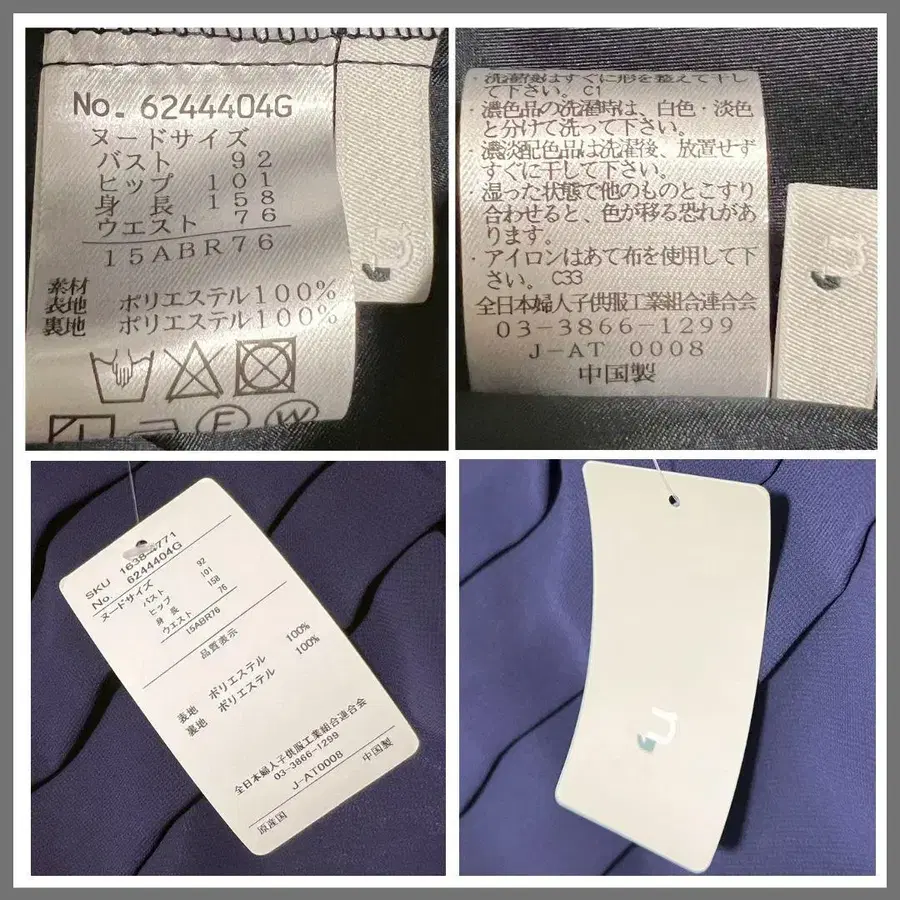 No. 6244404G
ヌードサイズ
バスト 92
ヒップ 101
身長 158
ウエスト 76
15ABR76
素材
表地 ポリエステル100%
裏地 ポリエステル100%
・洗濯後はすぐに形を整えて干し
て下さい。C1
・濃色品の洗濯時は、白色・淡色
と分けて洗って下さい。
・濃淡配色品は洗濯後、放置せず
すぐに干して下さい。
・湿った状態で他のものとこすり
合わせると、色が移る恐れがあ
ります。
・アイロンはあて布を使用して下
さい。C33
全日本婦人子供服工業組合連合会
03-3866-1299
J-AT 0008
中国製
SKU 1638-4771
No. 6244404G
ヌードサイズ
バスト 92
ヒップ 101
身長 158
ウエスト 76
15ABR76
品質表示
表地 ポリエステル 100%
裏地 ポリエステル 100%
全日本婦人子供服工業組合連合会
03-3866-1299
J-AT0008
原産国 中国製